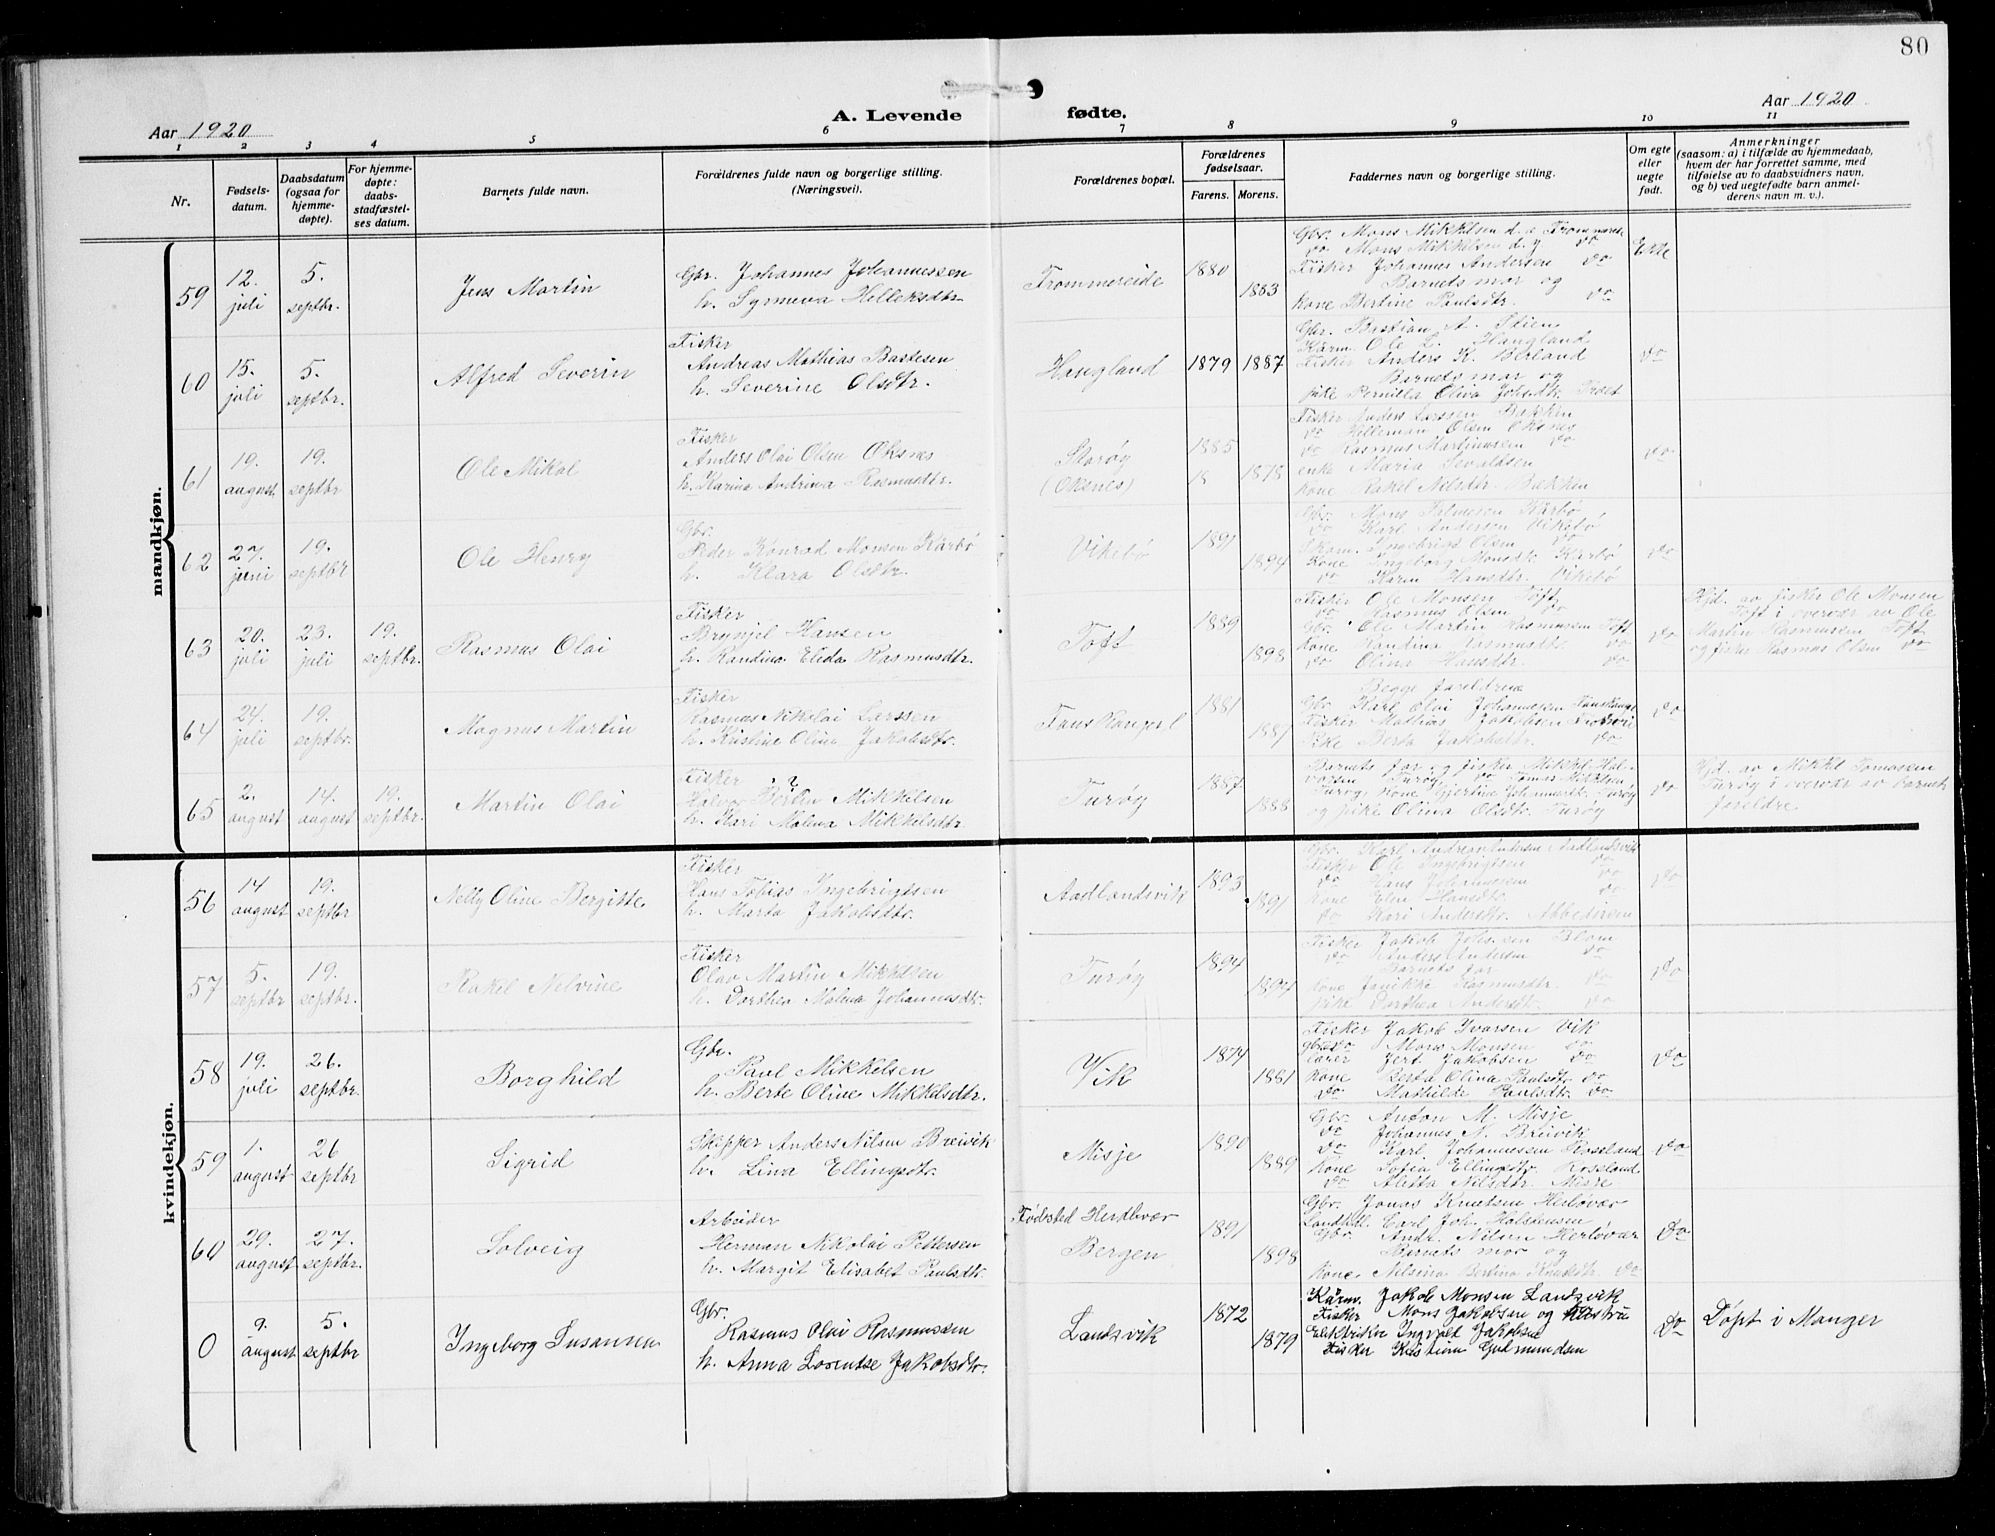 80
Aar 1920
A. Levende fødte.
Aar 1920
1 2 3 4 5 6 7 8 9 10 11
Nr.
Fødsels-
datum.
Daabsdatum
(ogsaa for
hjemme-
døpte).
For hjemme-
døpte:
daabs-
stadfæstel-
ses datum.
Barnets fulde navn.
Forældrenes fulde navn og borgerlige stilling.
(Næringsvei).
Forældrenes bopæl.
Forældrenes
fødselsaar.
Farens. Morens.
Faddernes navn og borgerlige stilling.
Om egte
eller
uegte
født.
Anmerkninger
(saasom: a) i tilfælde av hjemmedaab,
hvem der har forrettet samme, med
tilføielse av to daabsvidners navn,
og b) ved uegtefødte barn anmel-
derens navn m. v.).
mandkjøn.
59
12.
juli
5.
septbr.
Jens Martin
Gbr. Johannes Johannessen
h. Synneva Helleksdtr.
Trommereide
1880
1883
Gbr. Mons Mikkelsen d. e.
do Mons Mikkelsen d. y do
Fisker Johannes Andersen do
Barnets mor og
Kone Bertine Paulsdtr. do
Ekte
60
15.
juli
5.
septbr.
Alfred Severin
Fisker
Andreas Mathias Bastesen
h. Severine Olsdtr.
Haugland
1879 1887
Gbr. Bastian A. Stien
Kårm. Ole L. Haugland
Fisker Anders K. Berland
Barnets mor og
pike Pernilla Oliva Johsdtr. Træet
do
61
19.
august
19.
septbr
Ole Mikal
Fisker
Anders Olai Olsen Oksnes
h. Karina Andrina Rasmusdtr.
(Oksnes)
1885
18 1878
Fisker Anders Larsen Bakken
do Helleman Olsen Oksnes
do Rasmus Martinussen do
enke Maria Sevaldsen
Kone Rakel Nilsdtr. Bakken
do
62
27.
juni
19.
septbr
Ole Henry
Gbr.
Peder Konrad Monsen Kårbø
h. Klara Olsdtr.
Vikebø
1891
1894
do Karl Andersen Vikebø
Ingebrigt Olsen do
Kone Ingeborg Monsdtr. Kårbø
do Karen Hansdtr. Vikebø
do
63
20.
juli
23.
juli
19.
septbr.
Rasmus Olai
Fisker
Brynjel Hansen
h. Randina Elida Rasmusdtr.
Toft
1889
1898
Fisker Ole Monsen Toft
do Rasmus Olsen do
Gbr. Ole Martin Rasmussen Toft
Kone Randina Rasmusdtr. do
do Olina Hansdtr. do
do
Hjd. av fisker Ole Monsen
Toft i overvær av Ole
Martin Rasmussen Toft
og fisker Rasmus Olsen do
64
24.
juli
19.
septbr.
Magnus Martin
Fisker
Rasmus Nikolai Larssen
h. Kristine Oline Jakobsdtr.
1881
1887
Begge foreldrene
Gbr Karl Olai Johannesen
Fisker Mathias Jakobsen
Pike Berta Jakobsdtr. do
do
65
2.
august
14.
august
19.
septbr.
Martin Olai
Fisker
Halvor Bertin Mikkelsen
h. Kari Malena Mikkelsdtr.
Turøy
1887.
1888
Barnets far og fisker Mikkel Hal-
vorsen Turøy, do Tomas Mikkelsen
Turøy, Kone Gjertina Johannesdtr. Turøy
og pike Olina Olsdtr. Turøy
do
Hjd. av Mikkel Tomassen
Turøy i overvær av barnets
foreldre
kvindekjøn.
56
14
august
19.
septbr
Nelly Oline Bergitte
Fisker
Hans Tobias Ingebrigtsen
h. Marta Jakobsdtr.
Aadlandsvik
1893
1891
Gbr. Karl Andreas Andersen Aadlandsvik
Fisker Ole Ingebrigtsen do
do Hans Johannessen do
Kone Elen Hansdtr. do
do Kari Andersdtr.
do
57
5.
septbr
19.
septbr.
Rakel Nelvine
Fisker
Olav Martin Mikkelsen
h. Dorthea Malena Johannesdtr.
Turøy
1894
1894
Fisker Jakob Johs.sen Blom
do Anders Andersen do
Barnets far
Kone Janikke Rasmusdtr. do
pike Dorthea Andersdtr. do
do
58
19.
juli
26.
septbr.
Borghild
Gbr.
Paul Mikkelsen
h. Berte Oline Mikkelsdtr.
Vik
1874
1881
Fisker Jakob Ivarsen Vik
Mons Monsen do
Lærer Jert Jakobsen do
Kone Berta Olina Paulsdtr. do
do Mathilde Paulsdtr. do
do
59
1.
august
26
septbr
Sigrid
Skipper Anders Nilsen Breivik
h. Lina Ellingsdtr.
Misje
1890
1889
Gbr. Anton M. Misje
do Johannes N. Breivik
do Karl Johannessen Rosseland
Kone Sofia Ellingsdtr. Rosseland
do Aletta Nilsdtr. Misje
do
60
29.
august
27.
septbr.
Solveig
Arbeider
Herman Nikolai Pettersen
h. Margit Elisabet Paulsdtr.
Fødested Herdlevær
Bergen
1891
1898
Gbr. Jonas Knutsen Herløvær
Landhdl. Carl Joh. Halstensen
Gbr Andr. Nilsen Herløvær
Barnets mor og
Kone Nilsina Bertina Knutsdtr. do
do
0
9.
august
5.
septbr
Ingeborg Susanna
Gbr.
Rasmus Olai Rasmussen
h. Anna Lorentse Jakobsdtr.
Landsvik
1872
1879
Kårm. Jakob Monsen Landsvik
Fisker Mons Jakobsen og hustru
Elektriker Ingvald Jakobsen
Fisker Kristian Gudmundsen
do
Døpt i Manger